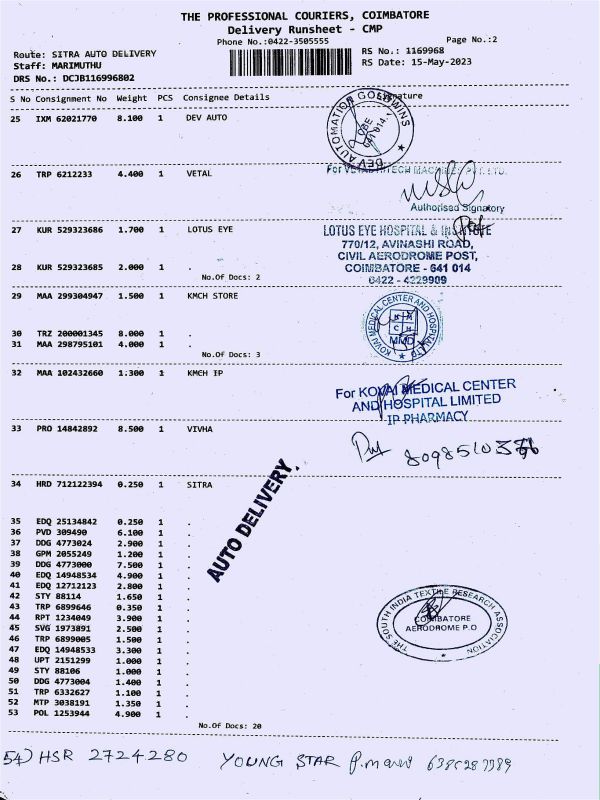 THE PROFESSIONAL COURIERS, COIMBATORE
Delivery Runsheet - CMP
Phone No.:0422-3505555
Page No.:2
Route: SITRA AUTO DELIVERY
RS No.: 1169968
Staff: MARIMUTHU
RS Date: 15-May-2023
DRS No.: DCJB116996802
S No Consignment No Weight PCS Consignee Details Signature
25 IXM 62021770 8.100 1 DEV AUTO
DEV AUTOMATION GOLDWINS
CBE
641 014.
26 TRP 6212233 4.400 1 VETAL
For VETAL HITECH MACHINES PVT. LTD.
Authorised Signatory
27 KUR 529323686 1.700 1 LOTUS EYE
LOTUS EYE HOSPITAL & INSTITUTE
770/12, AVINASHI ROAD,
CIVIL AERODROME POST,
COIMBATORE - 641 014
0422 - 4229909
28 KUR 529323685 2.000 1 .
No.Of Docs: 2
29 MAA 299304947 1.500 1 KMCH STORE
KOVAI MEDICAL CENTER AND HOSPITAL LTD
MMD
30 TRZ 200001345 8.000 1 .
31 MAA 298795101 4.000 1 .
No.Of Docs: 3
32 MAA 102432660 1.300 1 KMCH IP
For KOVAI MEDICAL CENTER
AND HOSPITAL LIMITED
IP PHARMACY
33 PRO 14842892 8.500 1 VIVHA
34 HRD 712122394 0.250 1 SITRA
AUTO DELIVERY.
35 EDQ 25134842 0.250 1 .
36 PVD 309490 6.100 1 .
37 DDG 4773024 2.900 1 .
38 GPM 2055249 1.200 1 .
39 DDG 4773000 7.500 1 .
40 EDQ 14948534 4.900 1 .
41 EDQ 12712123 2.800 1 .
42 STY 88114 1.650 1 .
43 TRP 6899646 0.350 1 .
44 RPT 1234049 3.900 1 .
45 SVG 1973891 2.500 1 .
46 TRP 6899005 1.500 1 .
47 EDQ 14948533 3.300 1 .
48 UPT 2151299 1.000 1 .
49 STY 88106 1.000 1 .
50 DDG 4773004 1.400 1 .
51 TRP 6332627 1.100 1 .
52 MTP 3038191 1.350 1 .
53 POL 1253944 4.900 1 .
THE SOUTH INDIA TEXTILE RESEARCH ASSOCIATION
COIMBATORE
AERODROME P.O
No.Of Docs: 20
54) HSR 2724280 YOUNG STAR